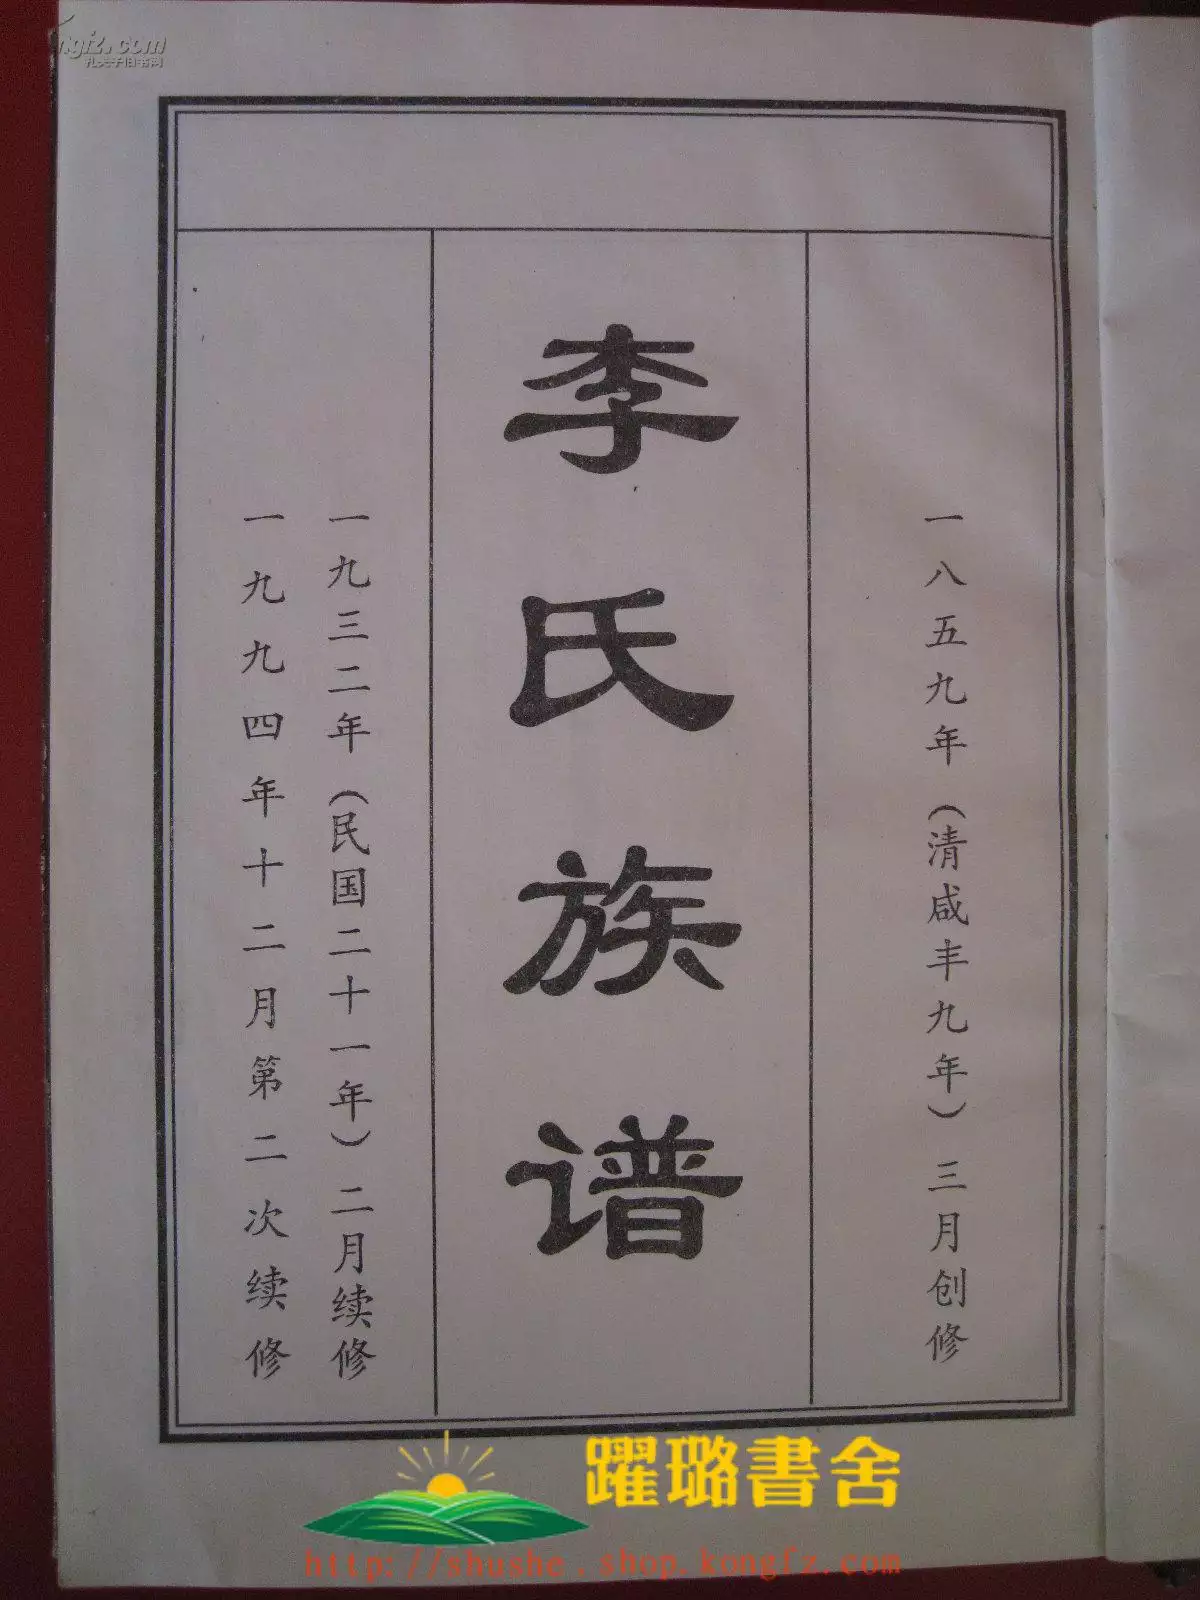 李氏族谱
一八五九年（清咸丰九年）三月创修
一九三二年（民国二十一年）二月续修
一九九四年十二月第二次续修
躍璐書舍
http://shushe.shop.kongfz.com
ngfz.com
孔夫子旧书网